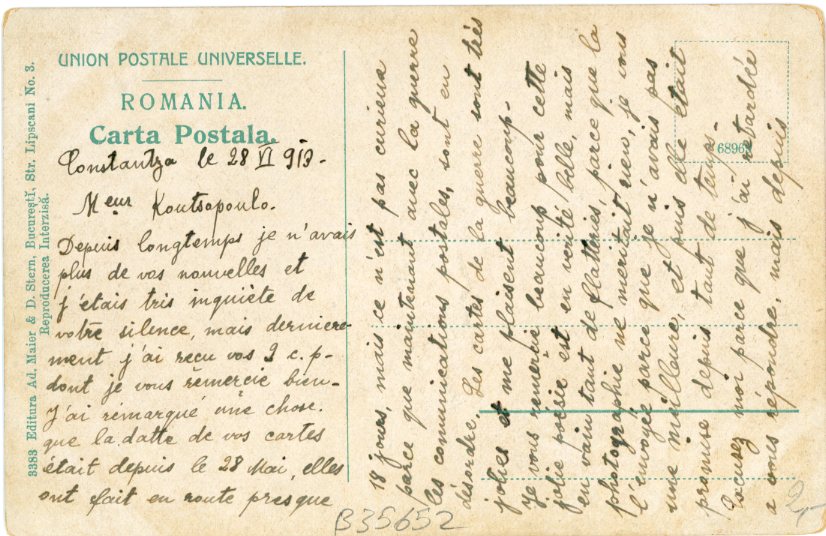 UNION POSTALE UNIVERSELLE.
ROMANIA.
Carta Postala.
3383 Editura Ad. Maier & D. Stern, Bucureştĭ, Str. Lipscani No. 3.
Reproducerea Interzisă.
Constantza le 28 VI 913-
Meur Koutsopoulo.
Depuis longtemps je n'avais
plus de vos nouvelles et
j'étais tris inquiète de
votre silence, mais derniere-
ment j'ai recu vos 2 c. p-
dont je vous remercie bien-
J'ai remarqué une chose.
que la datte de vos cartes
était depuis le 28 Mai, elles
ont fait en route presque
18 jours, mais ce n'est pas curieux
parce que maintenant avec la guerre
les comunications postales, sont en
désordre. Les cartes de la guerre sont très
jolies et me plaisent beaucoup-
Je vous remércie beaucoup pour cette
jolie poésie est en verité belle, mais
en vain tant de flatteries, parce que la
photographie ne meritait rien, je vous
l'envoyée parce que je n'avais pas
une meilleure, et puis elle était
promise depuis tant de temps-
Excusez moi parce que j'ai retardée
a vous répondre, mais depuis
6896
B35652
2,-